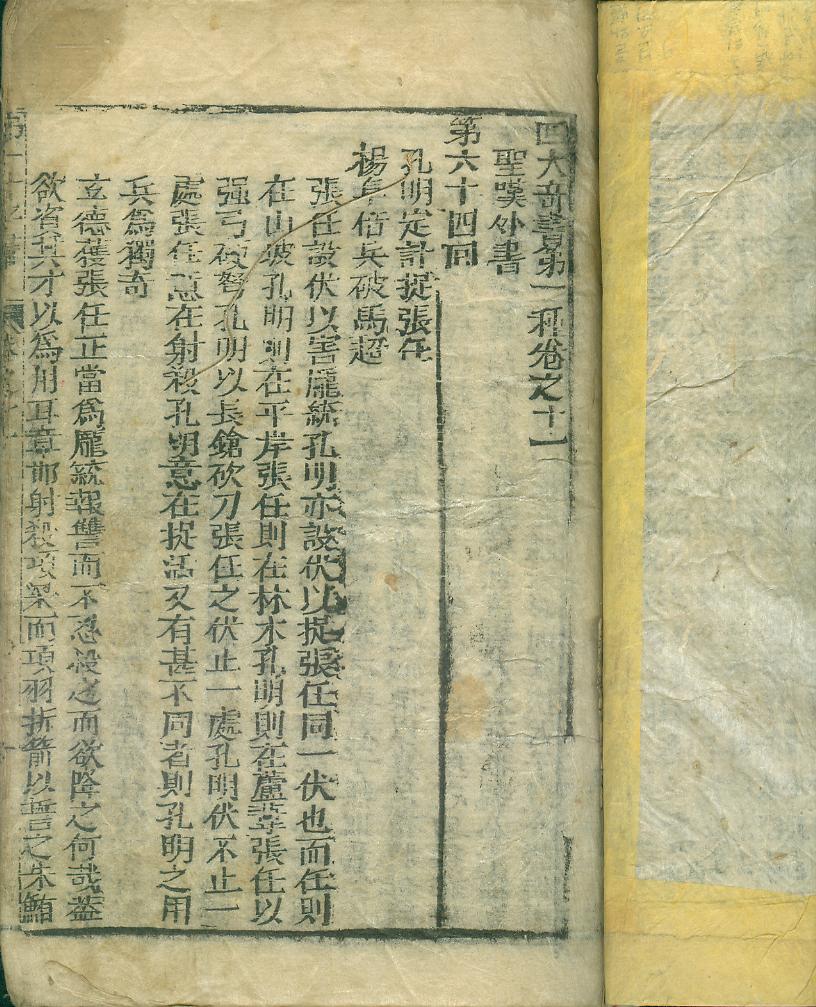 四大奇書第一種卷之十一
聖嘆外書
第六十四回
孔明定計捉張任
楊阜借兵破馬超
張任設伏以害龐統孔明亦設伏以捉張任同一伏也而任則
在山坡孔明則在平岸張任則在林木孔明則在蘆葦張任以
强弓硬弩孔明以長鎗砍刀張任之伏止一處孔明伏不止一
處張任意在射殺孔明意在捉活又有甚不同者則孔明之用
兵爲獨奇
玄德獲張任正當爲龐統報讐而不忍殺之而欲降之何哉蓋
欲資其才以爲用耳章邯射殺項梁而項羽折箭以誓之朱鮪